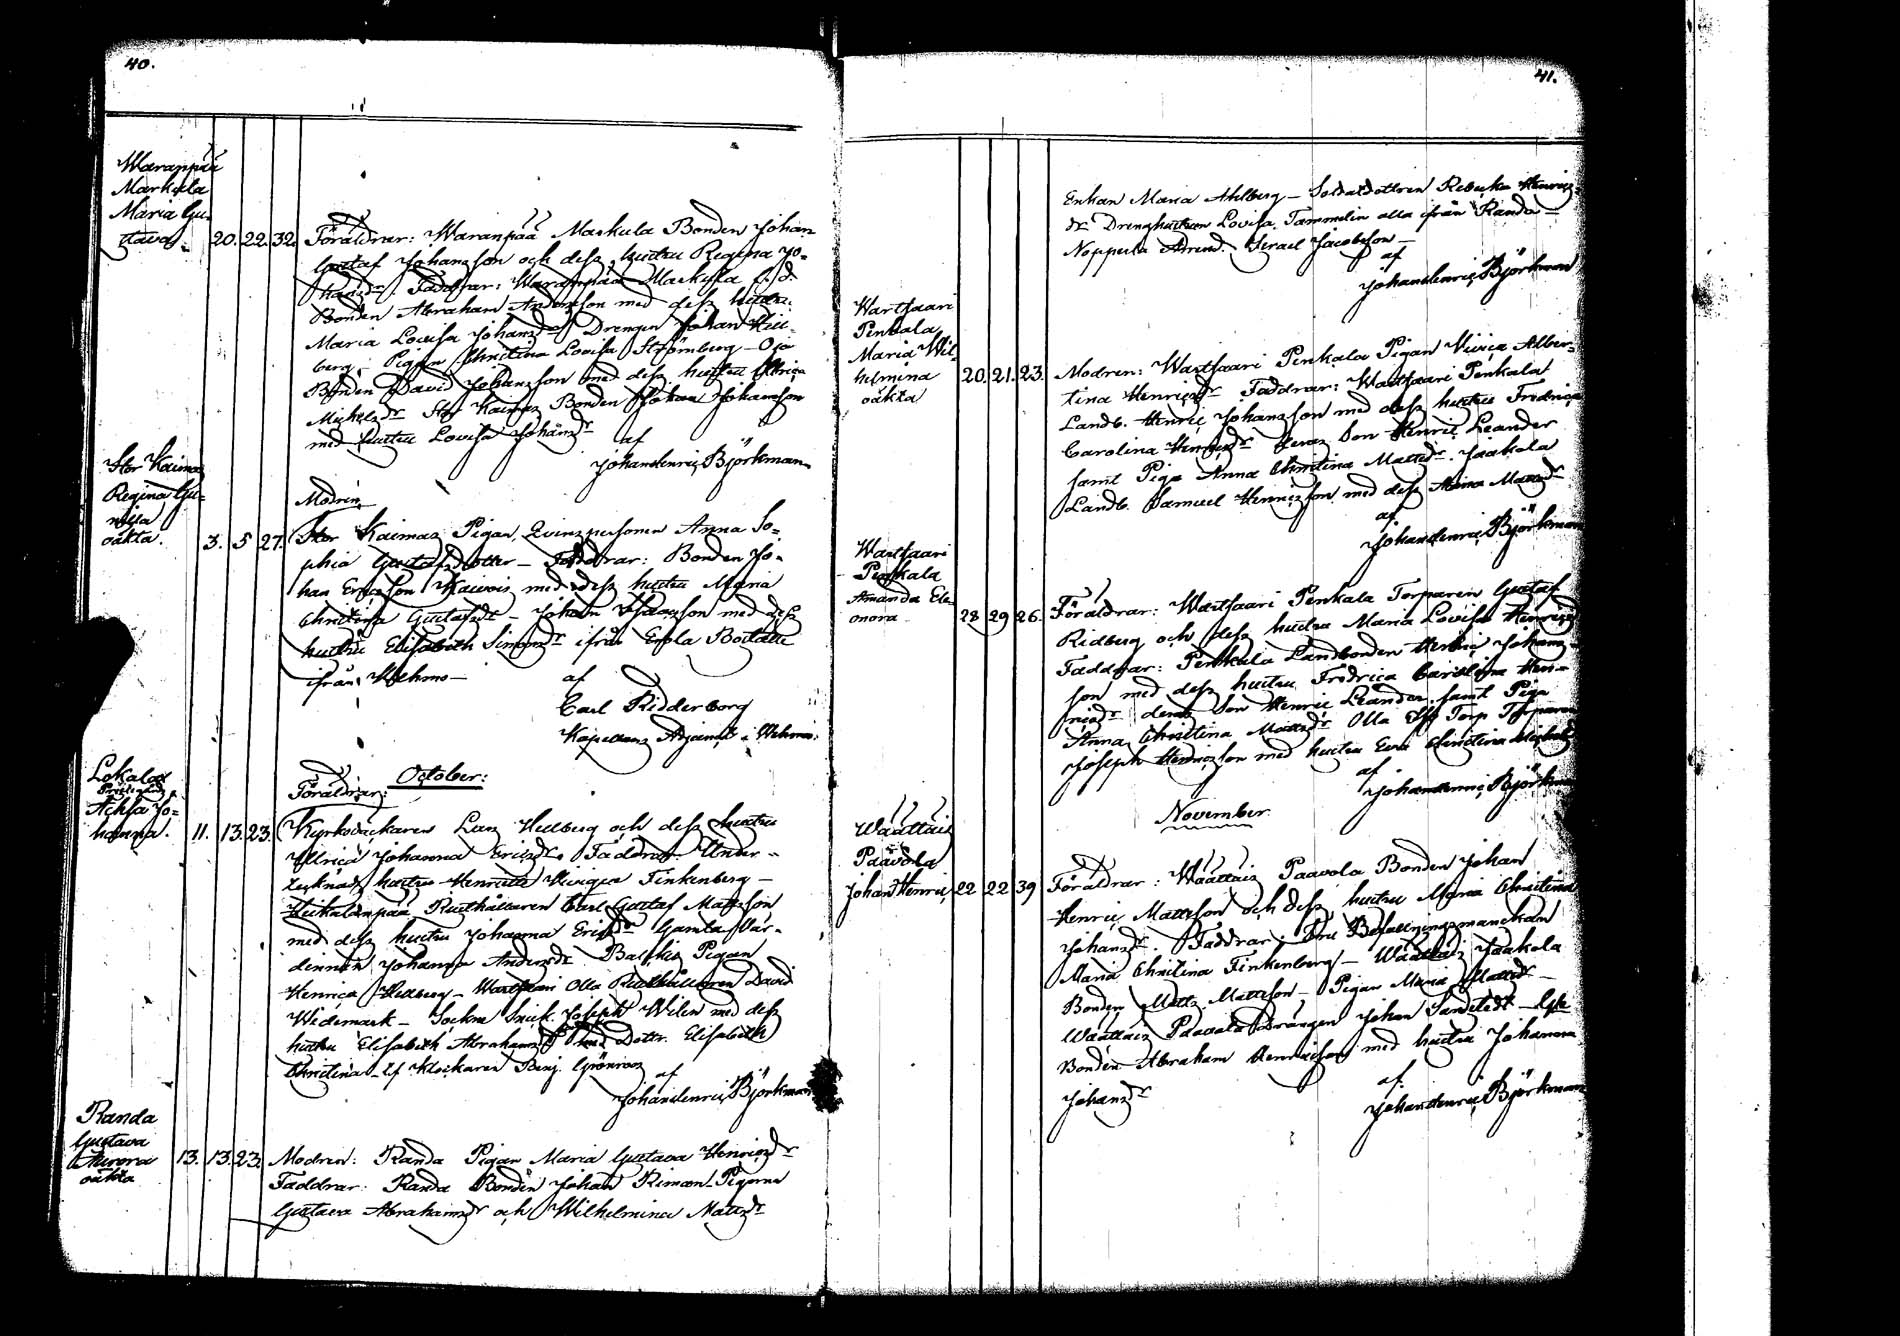 40.
Waranpää
Markula
Maria Gu-
stava. 20. 22. 32.
Föräldrar: Waranpää Markula Bonden Johan
Gustaf Johansson och dess hustru Regina Jo-
hansdr Faddrar: Waranpää Markula f. d.
Bonden Abraham Andersson med dess hustru
Maria Lovisa Johansdr Drengen Johan Hill-
berg, Pigan Christina Lovisa Strömberg - Oja
Bonden David Johansson med dess hustru Ulrica
Michelsdr Stor Kaimas Bonden Johan Johansson
med hustru Lovisa Johansdr
af
Johan Henric Björkman
Stor Kaimas
Regina Gu-
nilla
oäkta. 3. 5 27.
Modren
Stor Kaimas Pigan, Qvinspersonen Anna So-
phia Gustafsdotter - Faddrar: Bonden Jo-
han Ericsson Kaivois med dess hustru Maria
Christina Gustafsdr - Johan Isaacsson med dess
hustru Elisabeth Simonsdr ifrån Erola
ifrån Wehmo -
af
Carl Ridderborg
Kapellans Adjunct i Wehmo.
October:
Lokalax
Achsa Jo-
hanna. 11. 13. 23.
Föräldrar:
Kyrkoväcktaren Lars Hellberg och dess hustru
Ulrica Johanna Ericsdr Faddrar: Under-
tecknads hustru Henriette Vivigea Finkenberg -
Heikalanpää Rusthållaren Carl Gustaf Mattsson
med dess hustru Johanna Ericsdr Gamla Vär-
dinnan Johanna Andersdr Pigan
Henrica Hellberg - Wartsaari Olla Rusthållaren David
Widemark - Sockne Snick. Joseph Wilen med dess
hustru Elisabeth Abrahamsdr med Dottr. Elisabeth
Christina - Klockaren Benj. Grönroos
af
Johan Henric Björkman
Randa
Gustava
Aurora
oäkta 13. 13. 23.
Modren: Randa Pigan Maria Gustava Henricsdr
Faddrar: Randa Bonden Johan Riman - Pigorna
Gustava Abrahamsdr och Wilhelmina Mattsdr
41.
Enkan Maria Ahlberg - Soldatdottren Rebecka Henrics-
dr Drenghustrun Lovisa Tammelin alla ifrån Randa -
Nopperla Arrend. Israel Jacobsson -
af
Johan Henric Björkman
Wartsaari
Penkala
Maria Wil-
helmina
oäkta 20. 21. 23.
Modren: Wartsaari Penkala Pigan Vivica Alber-
tina Henricsdr Faddrar: Wartsaari Penkala
Landb. Henric Johansson med dess hustru Fredrica
Carolina Henricsdr deras Son Henric Leander
samt Piga Anna Christina Mattsdr. Jaakola
Landb. Samuel Henricsson med dess Maria Mattsdr
af
Johan Henric Björkman
Wartsaari
Penkala
Amanda Ele-
onora 28 29 26.
Föräldrar: Wartsaari Penkala Torparen Gustaf
Ridberg och dess hustru Maria Lovisa Henricsdr
Faddrar: Penkala Landbonden Henric Johans-
son med dess hustru Fredrica Carolina Hen-
ricsdr deras Son Henric Leander samt Piga
Anna Christina Mattsdr Olla Torp Torparen
Joseph Henricsson med hustru Eva Christina Michelsdr
af
Johan Henric Björkman
November
Waattais
Paavola
Johan Henric 22 22 39
Föräldrar: Waattais Paavola Bonden Johan
Henric Mattsson och dess hustru Maria Christina
Johansdr. Faddrar: Fru Befallningsmanskan
Maria Christina Finkenberg - Waattais Jaakola
Bonden Matts Mattsson - Pigan Maria Mattsdr -
Waattais Paavola Drängen Johan Sandstedt -
Bonden Abraham Henricsson med hustru Johanna
Johansdr
af
Johan Henric Björkman